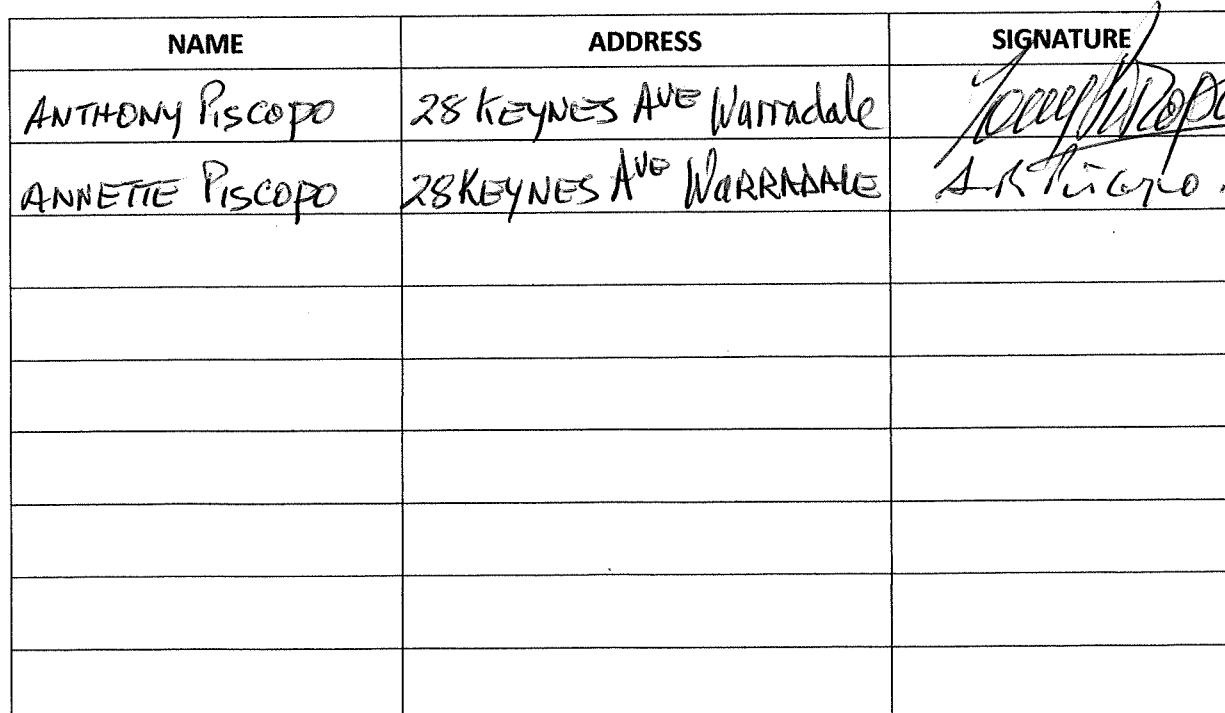 NAME ADDRESS SIGNATURE
ANTHONY PISCOPO 28 KEYNES AVE Warradale Tony Piscopo
ANNETTE PISCOPO 28 KEYNES AVE WARRADALE A.R Piscopo.